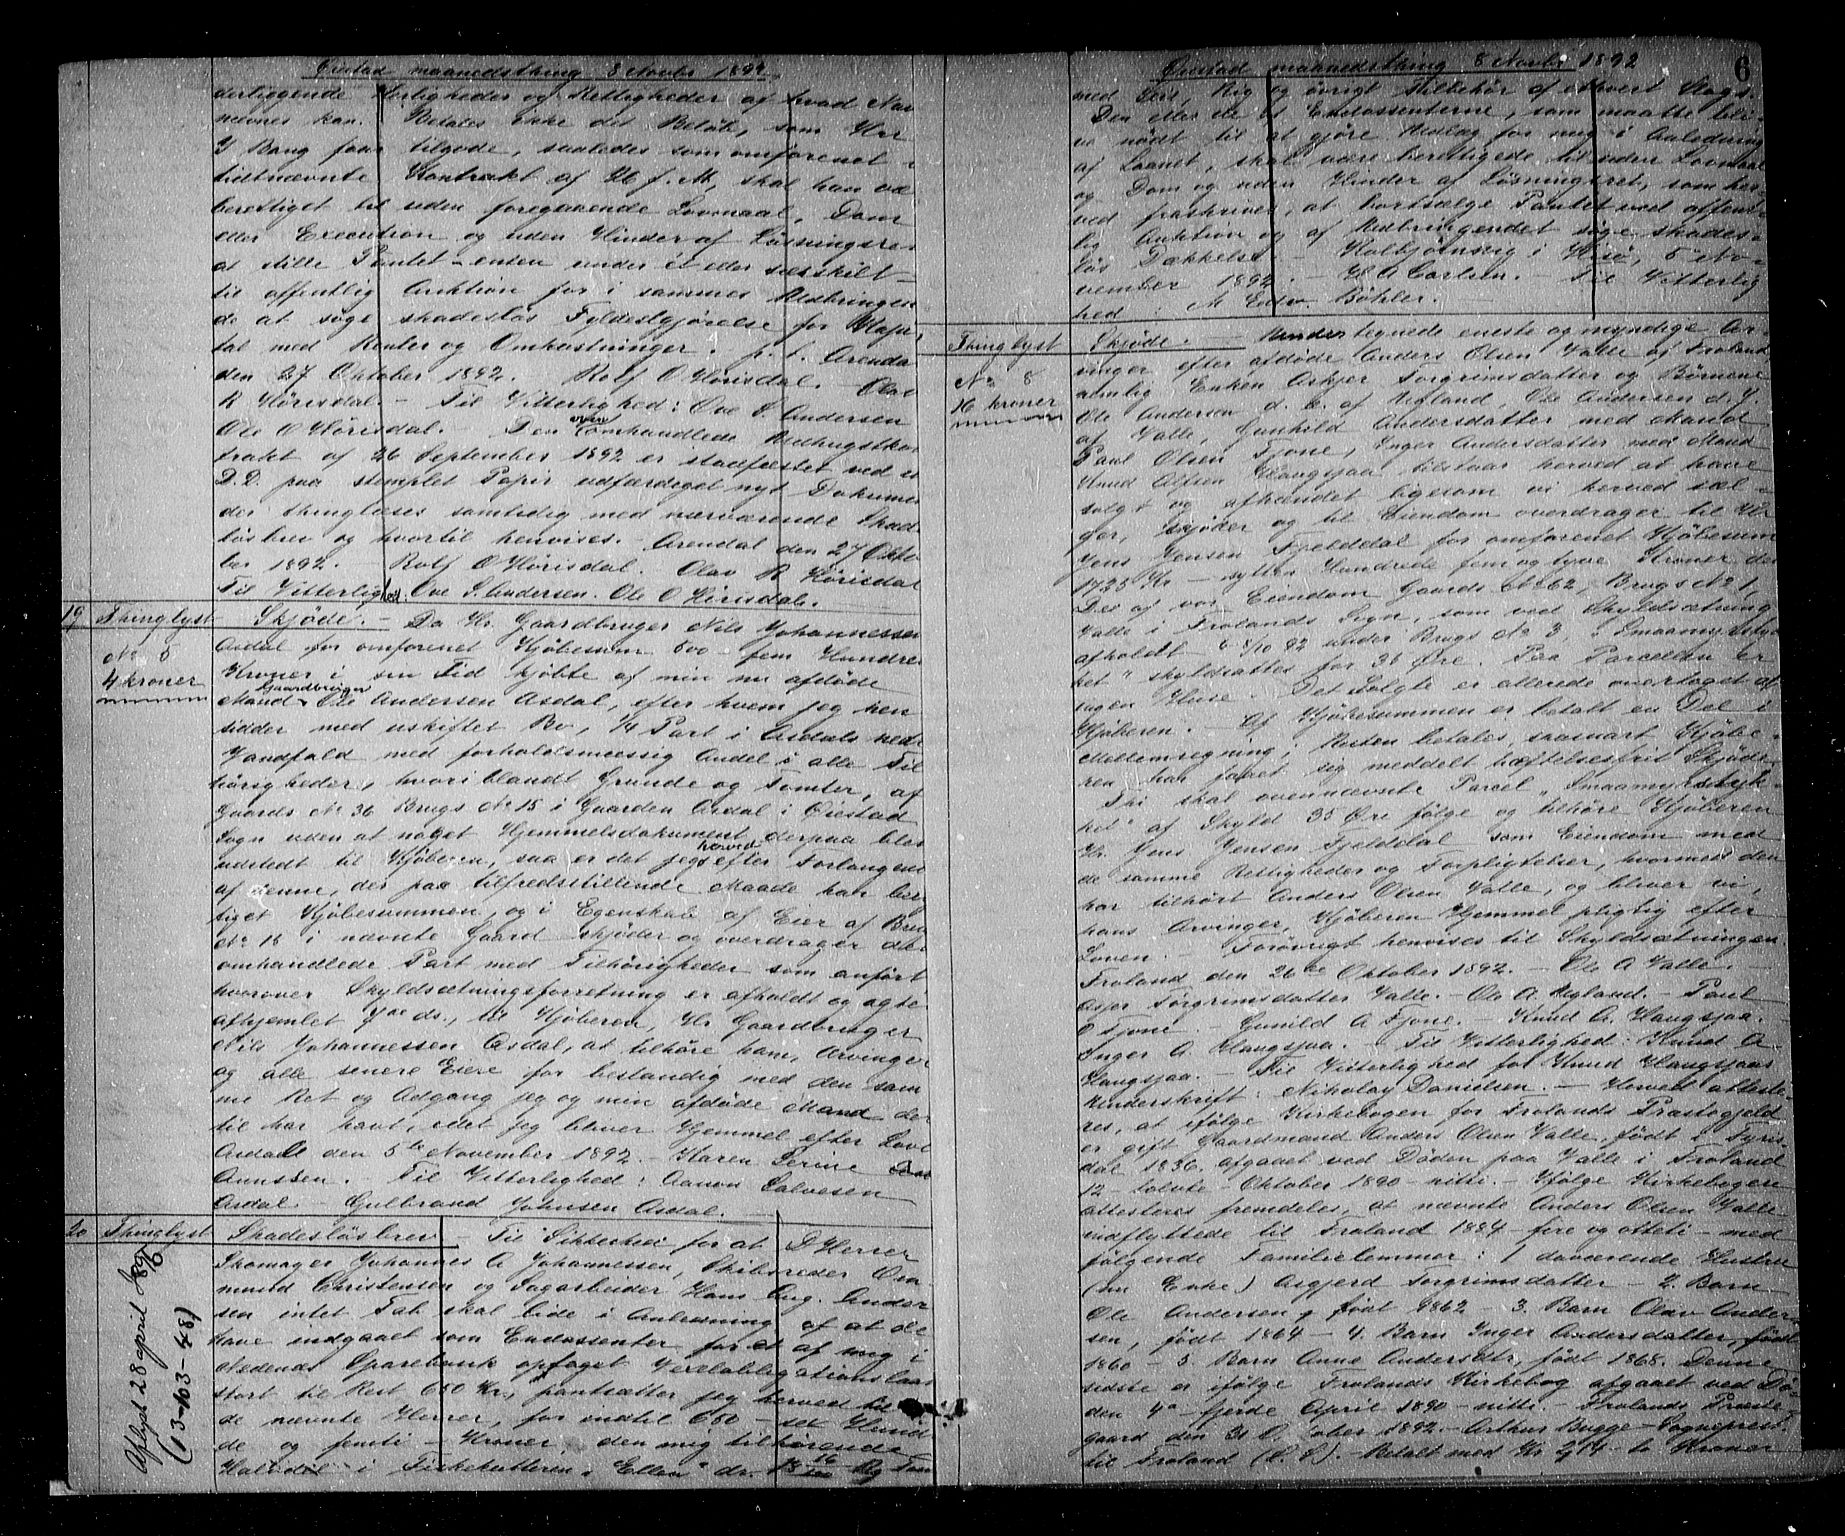 Øiestad maanedsthing 8 Novbr 1892
derliggende Herligheder og Rettigheder af hvad Nav
nævnes kan. Betales ikke det Beløb, som Hr
J Bang faar tilgode, saaledes som omforenet i
tidtnævnte Kontrakt af 26 f. M, skal han væ
berettiget til uden foregaaende Lovmaal, Dom
eller Execution og uden Hinder af Løsningsre
at stille Pantet enten under ét eller særskilt
til offentlig Auktion for i sammes Udbringen
de at søge skadesløs Fyldestgjørelse for Kapi
tal med Renter og Omkostninger. p. t. Arendal
den 27 Oktober 1892. Rolf O Hörisdal. Olav
R Hörisdal. - Til Vitterlighed: Ove S. Andersen
Ole O Hörisdal. - Den ovenomhandlede Udhugstkon
trakt af 26 September 1892 er stadfæstet ved et
D.D. paa stemplet Papir udfærdiget nyt Dokumen
der thinglæses samtidig med nærværende Skad
løsbrev og hvortil henvises. - Arendal den 27 Okto
ber 1892. Rolf O Hörisdal. Olav R Hörisdal
Til Vitterlighed: Ove S. Andersen. Ole O Hörisdal.
19 Thinglyst Skjøde. - Da Hr. Gaardbruger Nils Johannessen
No 5 Asdal for omforenet Kjøbesum 500 - fem Hundre
4 kroner Kroner i sin Tid kjøbte af min nu afdøde
Mand Gaardbruger Ole Andersen Asdal, efter hvem jeg hen
sidder med uskiftet Bo, 1/4 Part i Asdals nedr
Vandfald med forholdsmæssig Andel i alle Til
hørigheder, hvoriblandt Grunde og Tomter, af
Gaards No 36 Brugs No 15 i Gaarden Asdal i Øiestad
Sogn uden at noget Hjemmelsdokument derpaa blev
udstedt til Kjøberen, saa er det jeg herved efter Forlangend
af denne, der paa tilfredsstillende Maade har ber
tiget Kjøbesummen, og i Egenskab af Eier af Brug
No 15 i nævnte Gaard skjøder og overdrager de
omhandlede Part med Tilhørigheder som anført
hvorover Skyldsætningsforretning er afholdt og agte
afhjemlet ds., til Kjøberen, Hr Gaardbruger
Nils Johannessen Asdal, at tilhøre ham, Arvinger
og alle senere Eiere for bestandig med den sam
me Ret og Adgang jeg og min afdøde Mand der
til har havt, idet jeg bliver Hjemmel efter Lov
Asdal den 5te November 1892. - Karen Serine
Aunssen. - Til Vitterlighed: Aanon Salvesen
Asdal - Gulbrand Johnsen Asdal. -
20 Thinglyst Skadesløsbrev - Til Sikkerhed for at D'Herrer
Skomager Johannes A Johannessen, Skibsreder Om
mund Christensen og Sagarbeider Hans Aug. Ander
sen intet Tab skal lide i Anledning af at de
have indgaaet som Endossenter for et af mig i
Nedenes Sparebank optaget Vexelobligationslaan
stort til Rest 650 Kr, pantsætter jeg herved til
de nævnte Herrer, for indtil 650 - sex Hund
de og femti - Kroner, den mig tilhørende
Halvdel i Fiskekutteren "Ellen" dr.
Aflyst 28 april
(13-103-48)
Øiestad maanedsthing 8 Novbr 1892
6
med Seil, Rig og øvrigt Tilbehør af ethvert Slags.
Den eller de af Endossenterne, som maatte bli
ve nødt til at gjøre Udlæg for mig i Anledning
af Laanet, skal være berettigede til uden Lovmaal
og Dom og uden Hinder af Løsningsret, som her
ved fraskrives, at bortsælge Pantet ved offent
lig Auktion og af Udbringendet søge skades-
løs Dækkelse. - Kolbjørnsvig i Hisø, 5 No-
vember 1892. - H A Carlsen. - Til Vitterlig
hed: M Edv. Bøhler.
Thinglyst Skjøde. - Undertegnede eneste og myndige Ar-
No 8 vinger efter afdøde Anders Olsen Valle og Froland
16 kroner nemlig Enken Askjer Torgrimsdatter og Børnene
Ole Andersen d. E. af Regland, Ole Andersen d. Y.
af Valle, Gunhild Andersdatter med Mand
Paul Olsen Fjone, Inger Andersdatter med Mand
Knud Olsen Haugsjaa tilstaar herved at have
solgt og afhændet ligesom vi herved sæl-
ger, skjøder og til Eiendom overdrager til Hr
Jens Jensen Fjelddal for omforenet Kjøbesum
1725 Kr - sytten Hundrede fem og tyve Kroner den
Del af vor Eiendom Gaards No 62, Brugs No 1,
Valle i Frolands Sogn, som ved Skyldsætning
afholdt 6-8/10 92 under Brugs No 3, "Smaamyrstyk
ket" skyldsattes for 35 Øre. Paa Parcellen er
ingen Huse. - Det Solgte er allerede overtaget af
Kjøberen. - Af Kjøbesummen er betalt en Del i
Mellemregning; Resten betales, saasnart Kjøbe-
ren har faaet sig meddelt hæftelsesfrit Skjøde,
Thi skal ovennævnte Parcel "Smaamyrstyk
ket" af Skyld 35 Øre følge og tilhøre Kjøberen
Hr. Jens Jensen Fjelddal som Eiendom med
de samme Rettigheder og Forpligtelser, hvormed den
har tilhørt Anders Olsen Valle, og bliver vi,
hans Arvinger, Kjøberen Hjemmel pligtig efter
Loven. - Forøvrigt henvises til Skyldsætningen.
Froland den 26de Oktober 1892. - Ole A Valle. -
Asjer Torgrimsdatter Valle. - Ole A. Regland. - Paul
O Fjone. - Gunild A Fjone. - Knud A. Haugsjaa.
Inger A. Haugsjaa. - Til Vitterlighed: Knud A-
Haugsjaa. - Til Vitterlighed for Knud Haugsjaas
Underskrift: Nikolay Danielsen. - Herved atteste-
res, at ifølge Kirkebogen for Frolands Præstegjeld
er gift Gaardmand Anders Olsen Valle, født i Tyris
dal 1836, afgaaet ved Døden paa Valle i Froland
12 - tolvte - Oktober 1890 - nitti. - Ifølge Kirkebogen
attesteres fremdeles, at nævnte Anders Olsen Valle
indflyttede til Froland 1884 - fire og otteti - med
følgende Familielemmer: 1 daværende Hustru
(nu Enke) Asgjerd Torgrimsdatter - 2. Barn
Ole Andersen, født 1862 - 3. Barn Olav Ander
sen, født 1864 - 4. Barn Inger Andersdatter, født
1860 - 5 Barn Anne Andersdtr, født 1868. Denne
sidste er ifølge Frolands Kirkebog afgaaet ved Dø-
den 4de fjerde April 1890 - nitti. - Frolands Præste
gaard den 31 October 1892 - Arthur Bugge - Sogneprest
til Froland (L. S.). - Betalt med Kr 2/14 - to Kroner